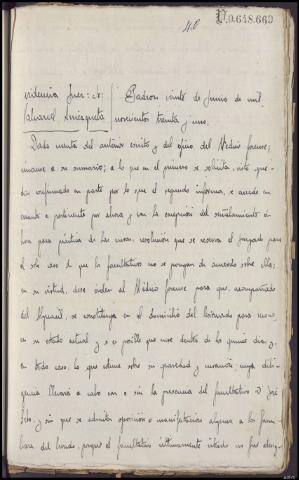 40
D.0.648.660
videncia Juez: Sr. Padron veinte de Junio de mil
Alvarez Amezqueta novecientos treinta y uno.
Dada cuenta del anterior escrito y del oficio del Médico forense;
únanse a su sumario; a lo que en el primero se solicita, visto que-
da confirmado en parte por lo que el segundo informa, se accede en
cuanto a pertinente por ahora y con la excepción del señalamiento
hora para práctica de las curas, resolución que se reserva el Juzgado para
el solo caso de que los facultativos no se pongan de acuerdo sobre ello;
en su virtud, dése orden al Médico forense para que, acompañado
del Alguacil, se constituya en el domicilio del lesionado para
su estado actual y si es posible que cure dentro de los quince dias y,
en todo caso, lo que estime sobre su gravedad y curación; cuya dili-
gencia llevará a cabo con o sin la presencia del facultativo D. José
y sin que se admitan oposición o manifestación alguna a los fami-
liares del herido, porque el facultativo últimamente citado no fué